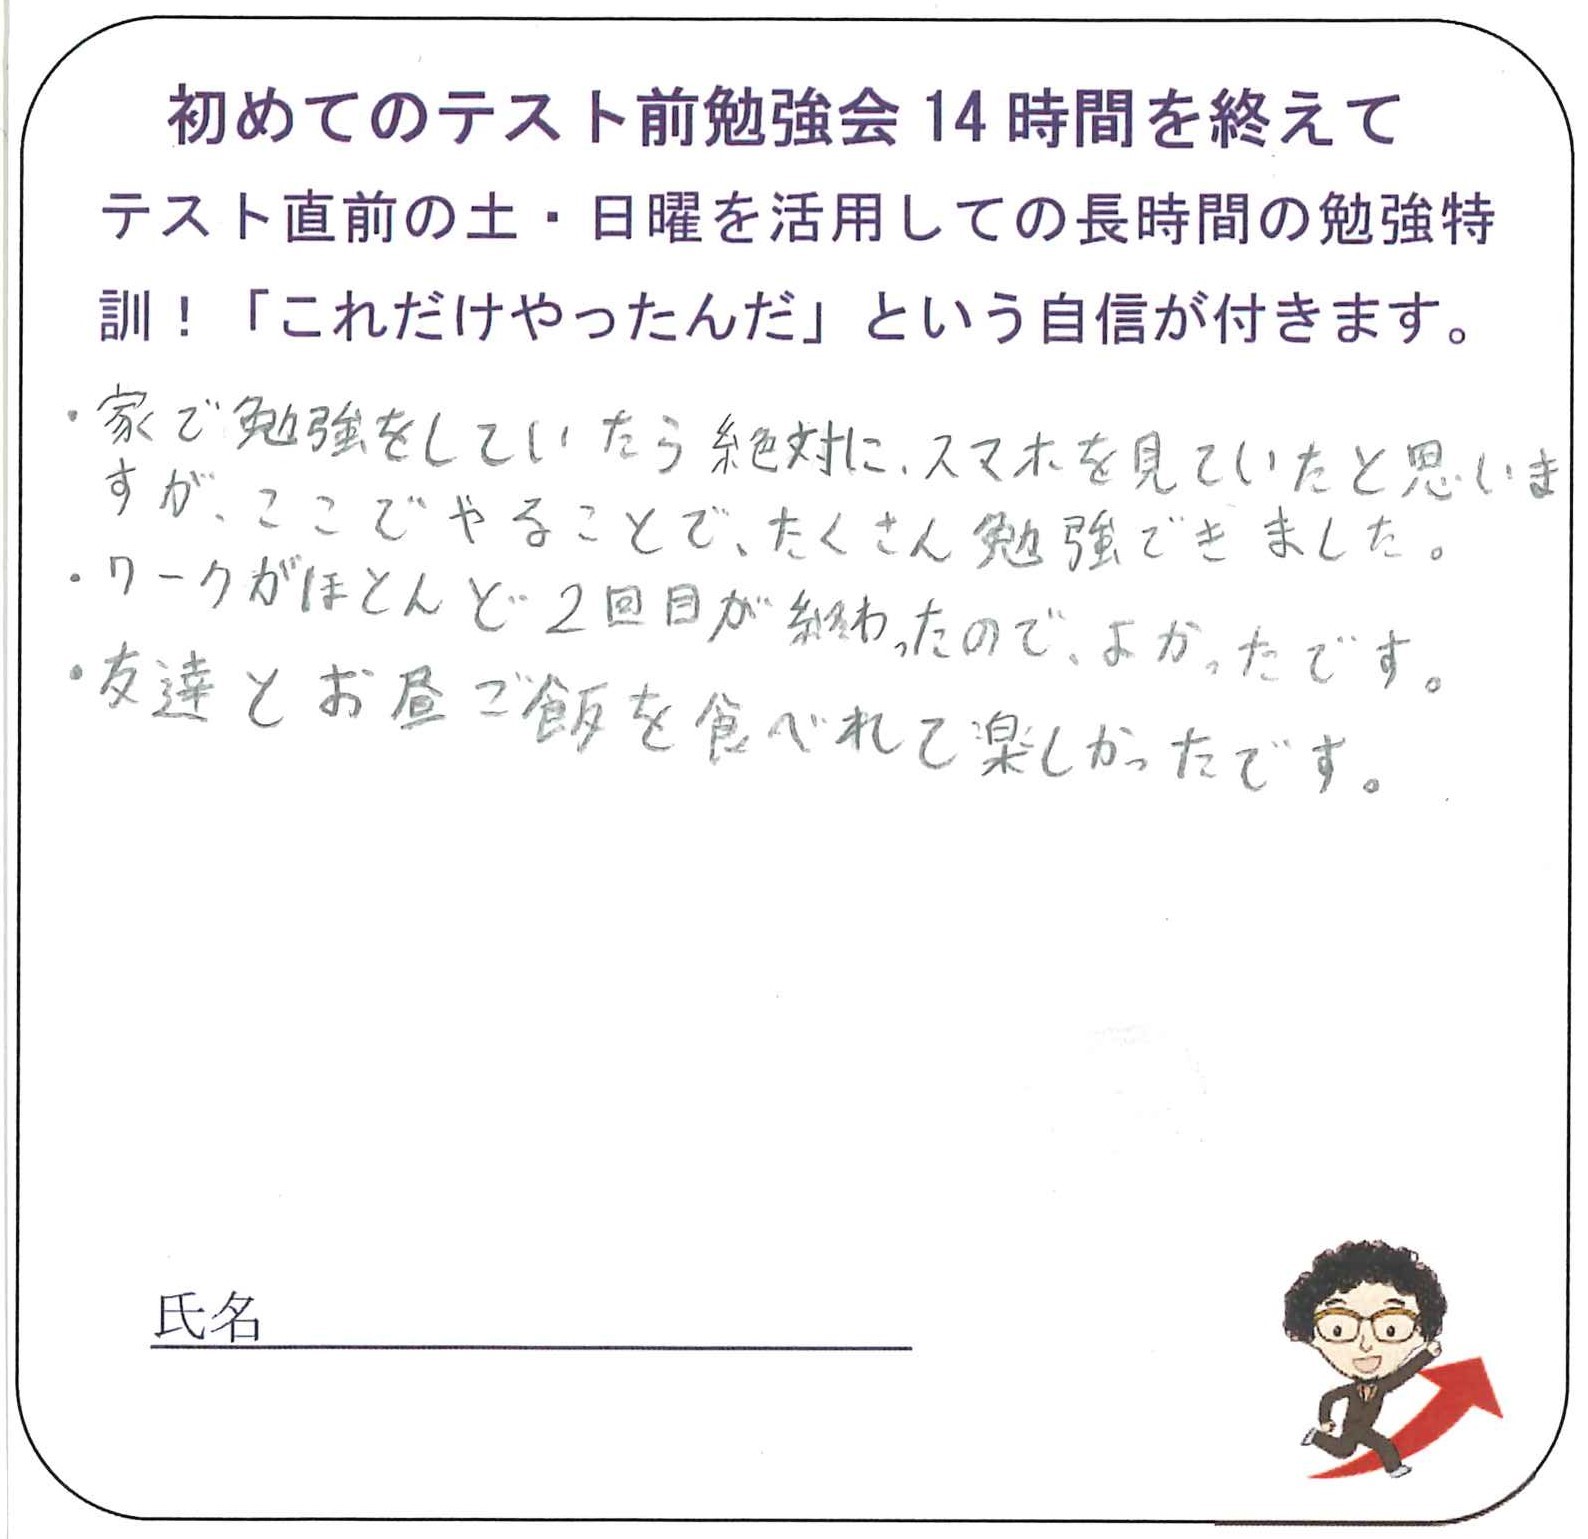 初めてのテスト前勉強会 14 時間を終えて
テスト直前の土・日曜を活用しての長時間の勉強特
訓！「これだけやったんだ」という自信が付きます。
・家で勉強をしていたら絶対に、スマホを見ていたと思いま
すが、ここでやることで、たくさん勉強できました。
・ワークがほとんど2回目が終わったので、よかったです。
・友達とお昼ご飯を食べれて楽しかったです。
氏名